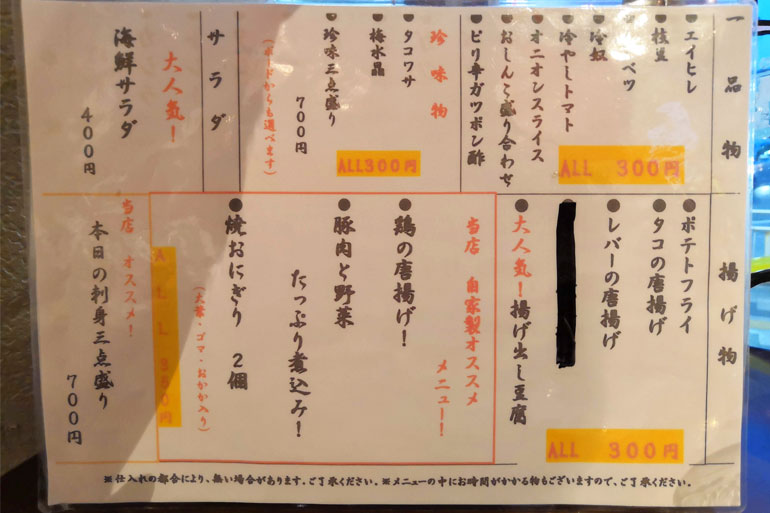 一品物
●エイヒレ
●枝豆
ベツ
●冷奴
●冷やしトマト
●オニオンスライス
●おしんこ盛り合わせ
●ピリ辛ガツポン酢
ALL 300円
珍味物
●タコワサ
●梅水晶
●珍味三点盛り
700円
(ボードからも選べます)
ALL300円
サラダ
大人気!
海鮮サラダ
400円
揚げ物
●ポテトフライ
●タコの唐揚げ
●レバーの唐揚げ
●
●大人気!揚げ出し豆腐
ALL 300円
当店 自家製オススメ
メニュー!
●鶏の唐揚げ!
●豚肉と野菜
たっぷり煮込み!
●焼おにぎり 2個
(大葉・ゴマ・おかか入り)
ALL 350円
当店 オススメ!
本日の刺身三点盛り
700円
※仕入れの都合により、無い場合があります。ご了承ください。※メニューの中にお時間がかかる物もございますので、ご了承ください。